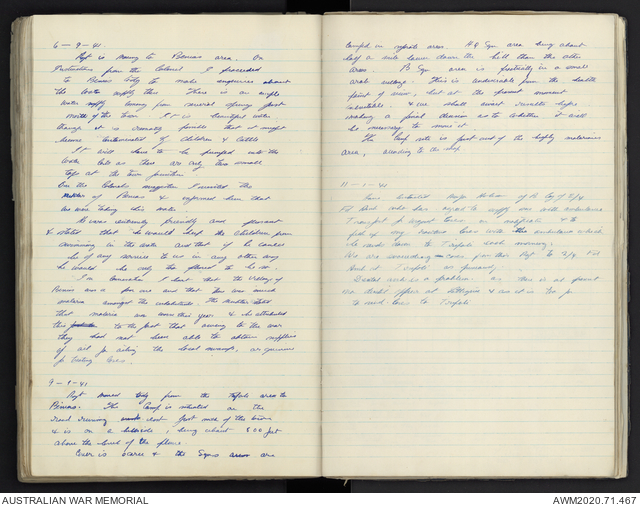 6 – 9 – 41.
Regt is moving to Beinas area. On
instructions from the Colonel I proceeded
to Beinas today to make enquiries about
the water supply there. There is an ample
water supply coming from several springs just
of the town. It is beautiful water
though it is possible that it might
become contaminated by children & cattle
It will have to be pumped into the
water carts as there are only two small
taps at the town fountain
On the Colonels suggestion I visited the
of Beinas & informed him that
we were taking this water.
He was extremely friendly and pleasant
& stated that he would keep the children from
swimming in the water and that if he could
be of any service to us in any other way
he would be only too pleased to be so.
I'm that the village of
Beinas was a one and that there was much
malaria amongst the inhabitants. The stated
that malaria was worse this year & he attributed
this to the fact that owing to the war
they had not been able to obtain supplies
of oil for oiling the local swamps, or quinine
for treating cases.
9 – 1 – 41
Regt moved today from the Tripoli area to
Beinas. The Camp is situated on the
road running west of the town
& is on a hillside, being about 800 feet
above the level of the plain.
Cover is scarce & the Sqns are
camped in areas. HQ Sqn area being about
half a mile lower down the hill than the other
areas. B Sqn area is practically in a small
arab village. This is undesirable from the health
point of view, but at the present moment
unavoidable & we shall await results before
making a final decision as to whether it will
be necessary to move it.
The Camp site is just out of the highly malarious
area, according to the map
11 – 1 – 41
Have contacted Major of A Coy of 2/4
Fd Amb who has agreed to supply me with ambulance
Transport for urgent cases, on application & to
pick up my routine cases with the ambulance which
he sends down to Tripoli each morning.
We are evacuating cases from this Regt to 2/4 Fd
Amb at Tripoli at present.
Dental work is a problem as there is at present
no dental officer at & we it is too far
to send cases to Tripoli
AUSTRALIAN WAR MEMORIAL
AWM2020.71.467